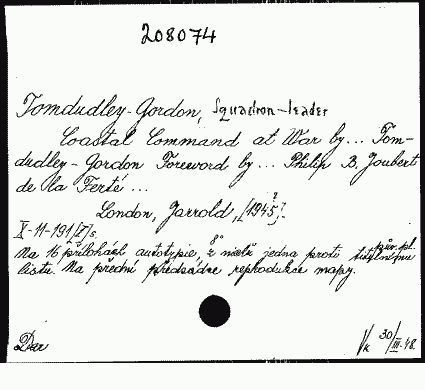 208074
Tomdudley-Gordon, Squadron-leader
Coastal Command at War by... Tom-
dudley-Gordon Foreword by... Philip B. Joubert
de la Ferté ...
London, Jarrold, [1945?].
X-11-191 [I] s.
8°
Na 16 přílohách autotypie, z nichž jedna proti titulnímu
listu. Na přední předsádce reprodukce mapy.
Dar
30/III.48